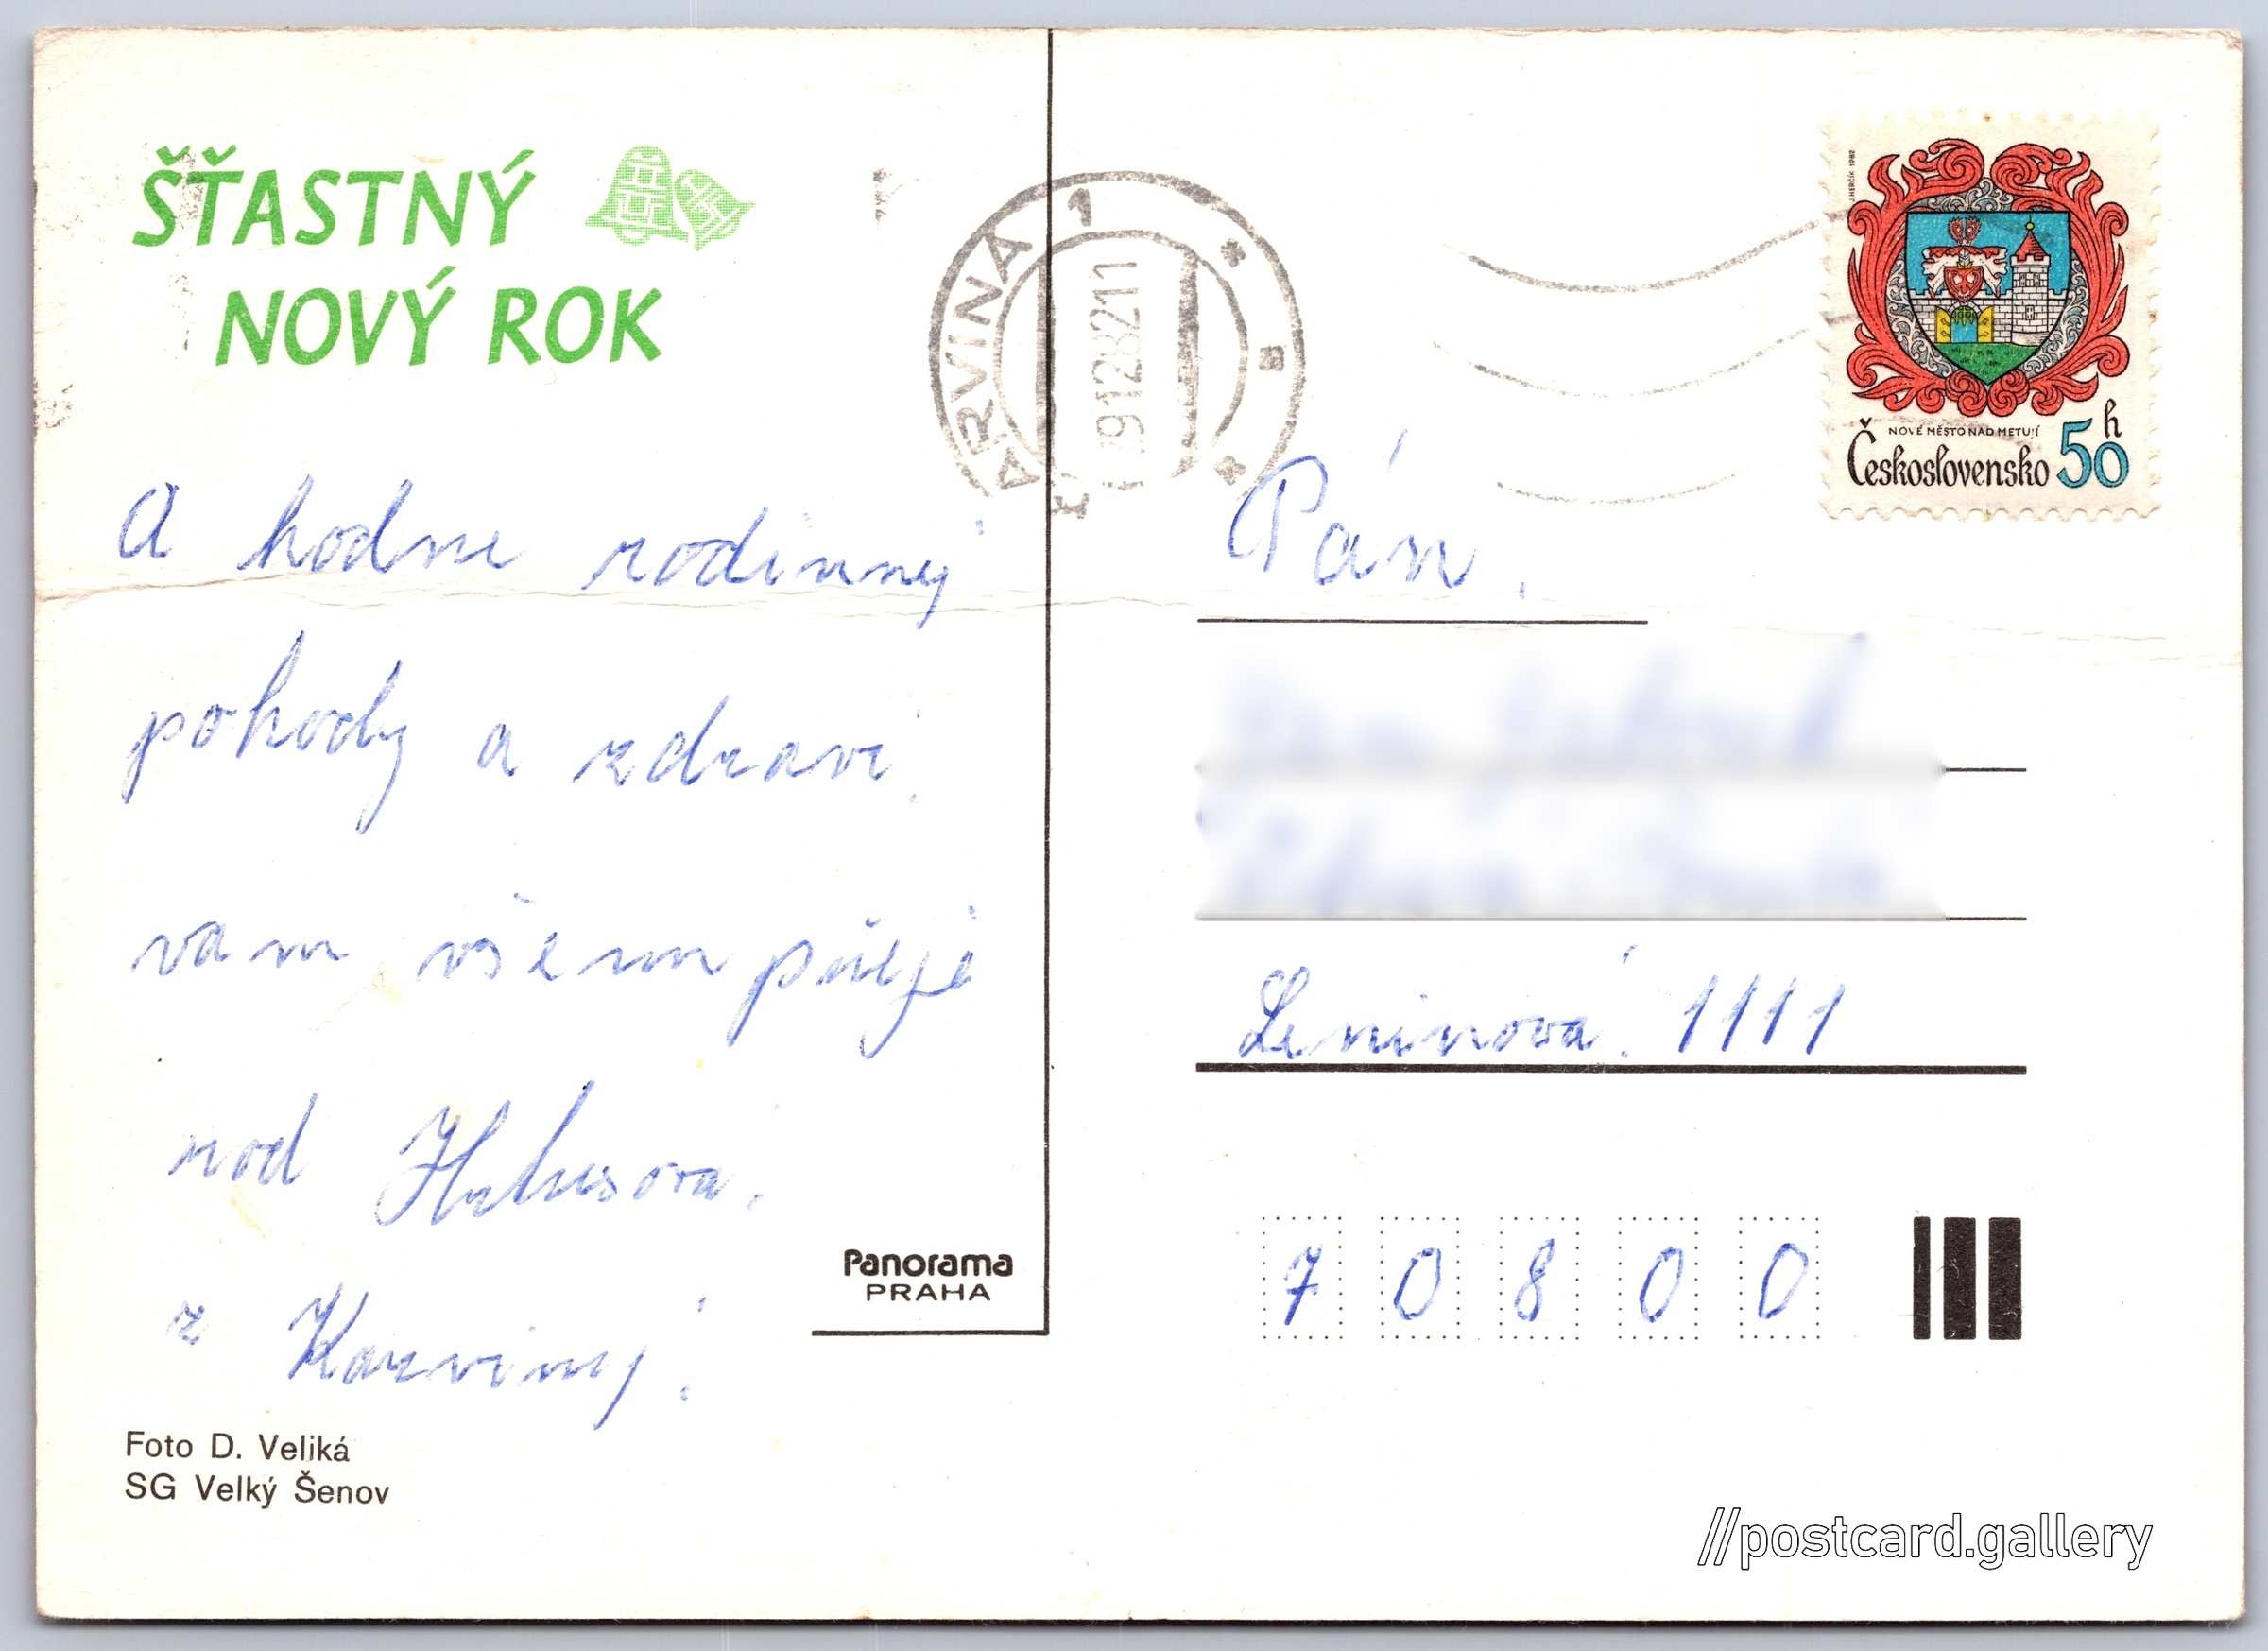 ŠŤASTNÝ
NOVÝ ROK
A hodne rodinnej
pohody a zdravi
vam všem přeje
rod
z Karvinej.
Panorama
PRAHA
Foto D. Veliká
SG Velký Šenov
ARVINÁ 1
9 12 82 11
J. HERČÍK 1982
NOVÉ MĚSTO NAD METUJÍ
Československo 50 h
Pán.
Leninová. 1111
7 0 8 0 0
//postcard.gallery